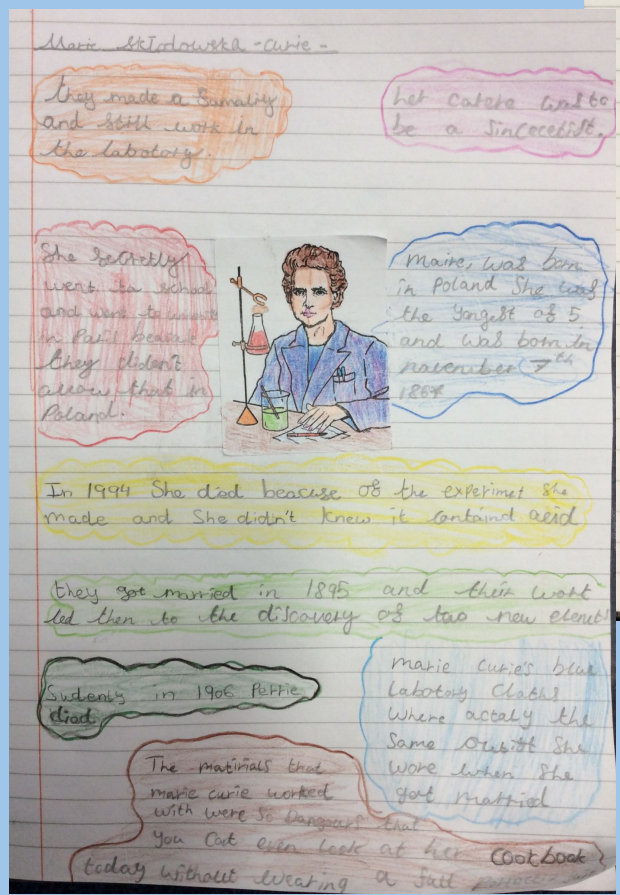 Marie Sktodowska-curie-
they made a Samaliy
and still work in
the labotory.
her carere was to
be a Sincecetist.
She secretly
went to school
and went to
in Paris beacuse
they didisn't
allow that in
Poland.
maire, was born
in Poland She was
the yongest of 5
and was born in
november 7th
1867
In 1994 She died beacuse of the experimet she
made and She didn't knew it containd acid
they got married in 1895 and their work
led then to the discovery of two new elemets
Sudenly in 1906 Perrie
died
marie curie's blue
labotory cloths
where actaly the
same outift she
wore when she
got married
The matirials that
marie curie worked
with were so Dangours that
you cat even look at her cootbook
today without wearing a full